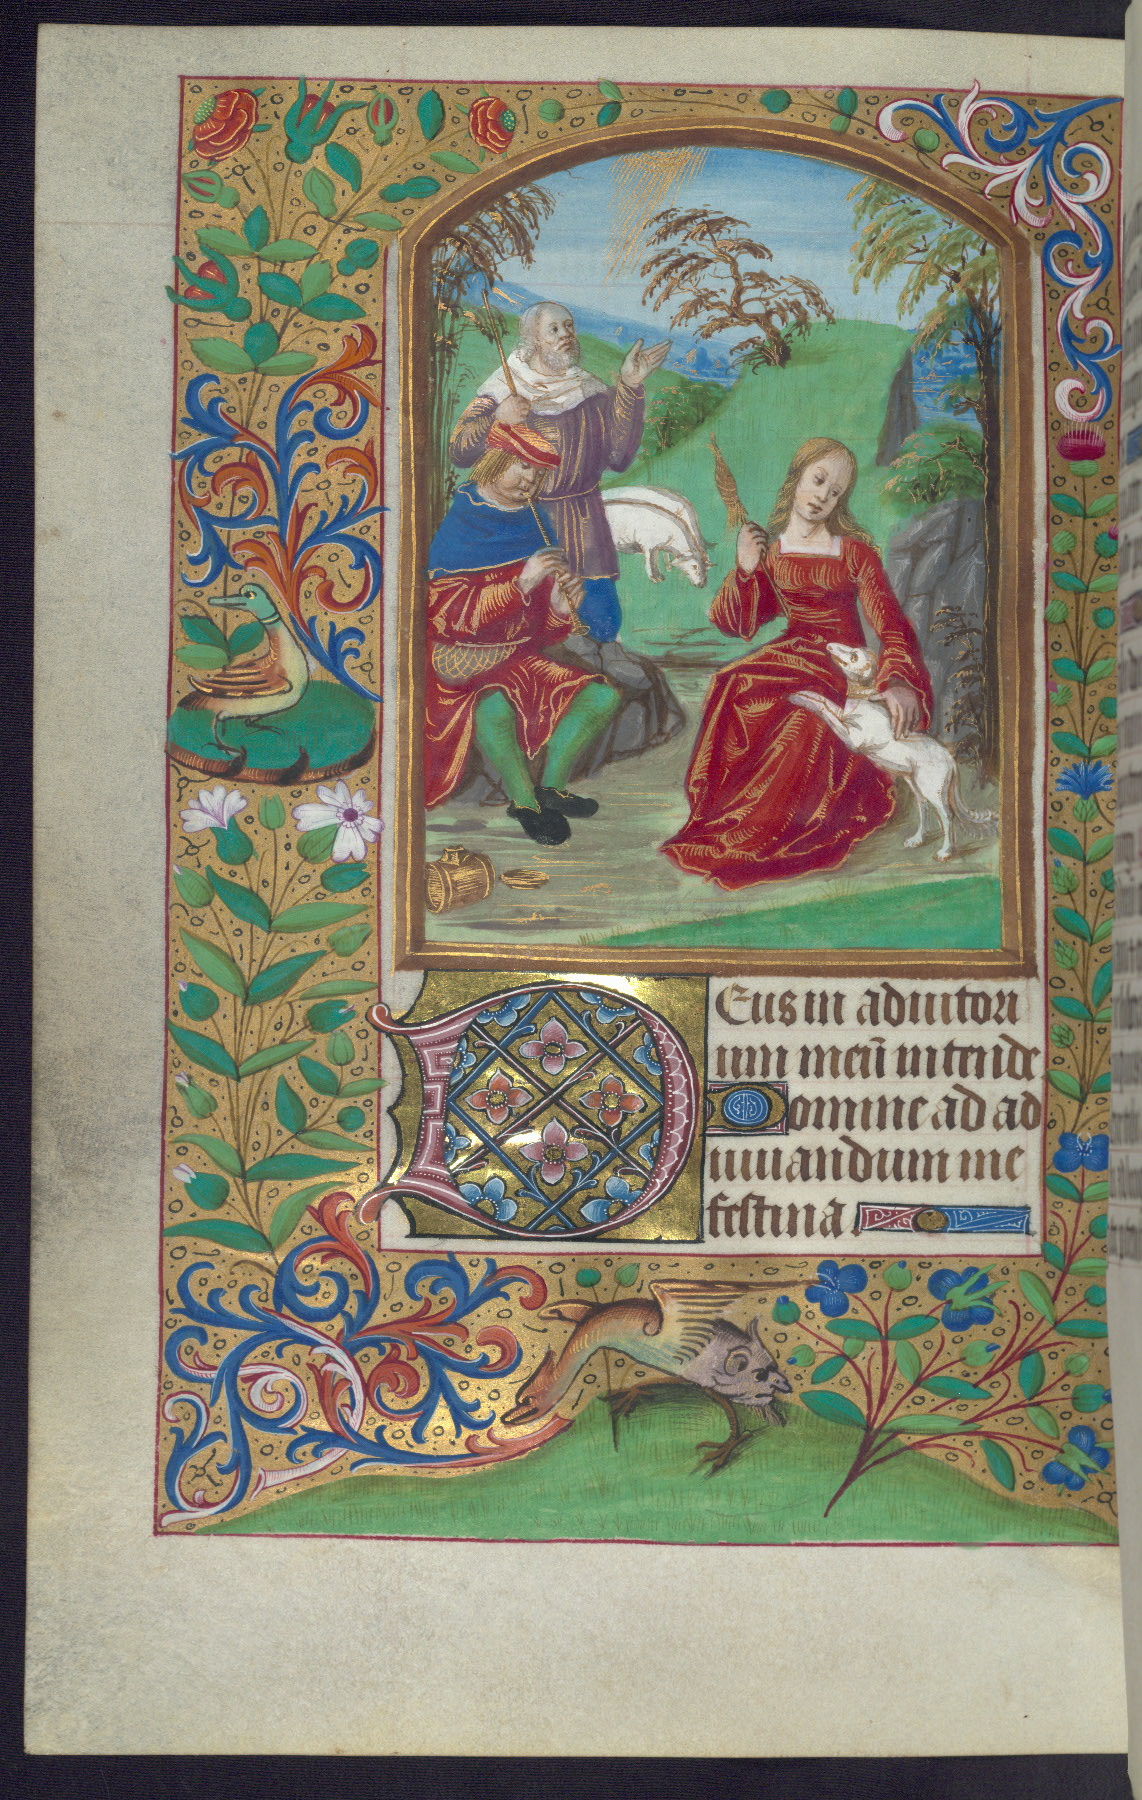 Deus in adiutori
um meū intende
Domine ad ad
iuuandum me
festina